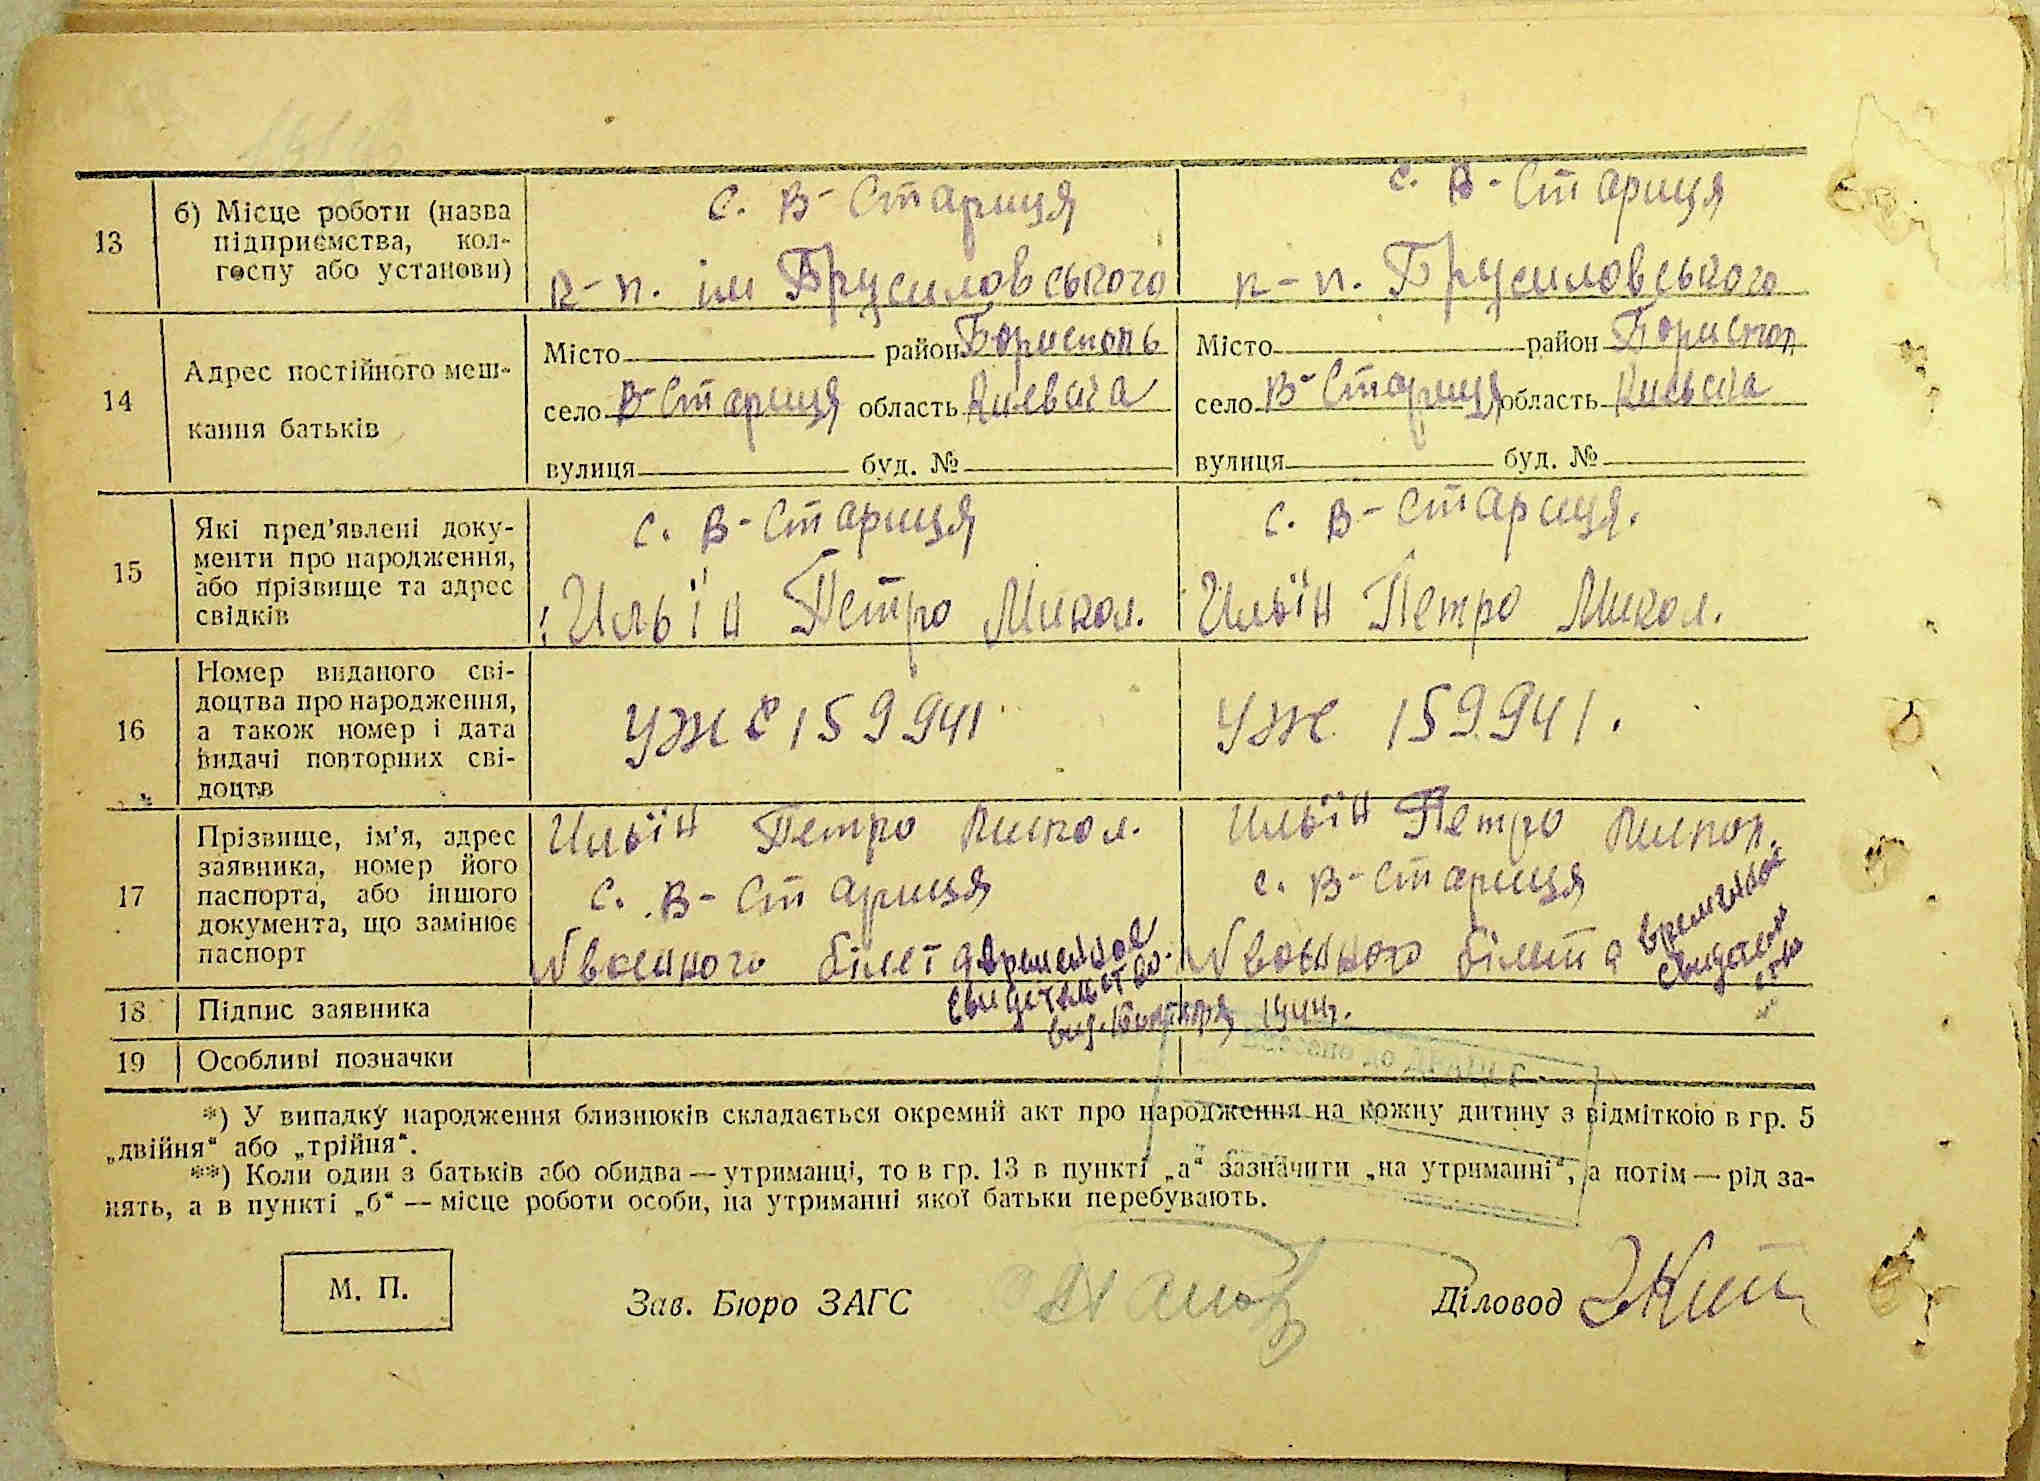 13
б) Місце роботи (назва
підприємства, кол-
госпу або установи)
с. В-Стариця
к-п. ім Брусиловського
с. В-Стариця
к-п. Брусиловського
14
Адрес постійного меш-
кання батьків
Місто район Бориспопь
село В-Стариця область Киевсіка
вулиця буд. №
Місто район Бориспол
село В-Стариця область Киевска
вулиця буд. №
15
Які пред'явлені доку-
менти про народження,
або прізвище та адрес
свідків
с. В-Стариця
Ильїн Петро Микол.
с. В-Стариця.
Ильїн Петро Микол.
16
Номер виданого сві-
доцтва про народження,
а також номер і дата
видачі повторних сві-
доцтв
УЖ 159941
УЖ 159941.
17
Прізвище, ім'я, адрес
заявника, номер його
паспорта, або іншого
документа, що замінює
паспорт
Ильїн Петро Микол.
с. В-Стариця
№ военного білета временное
свидетельство
Ильїн Петро Микол.
с. В-Стариця
№ военного білета временное
свидетель
ство
18
Підпис заявника
1944г.
19
Особливі позначки
*) У випадку народження близнюків складається окремий акт про народження на кожну дитину з відміткою в гр. 5
„двійня“ або „трійня“.
**) Коли один з батьків або обидва — утриманці, то в гр. 13 в пункті „а“ зазначити „на утриманні“, а потім — рід за-
нять, а в пункті „б“ — місце роботи особи, на утриманні якої батьки перебувають.
М. П.
Зав. Бюро ЗАГС
Діловод